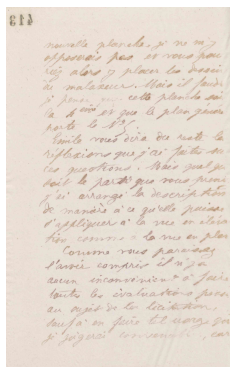 nouvelle planche, je ne m'y
opposais pas et vous pour
alors y placer les dessins
de malaxeur. Mais il faudr
cette planche soit
la 6ème et que le plan général
porte le N° 5
Emile vous dira du reste les
réflexions que j'ai faites sur
ces questions. Mais quel que
soit le parti que vous preniez
j'ai arrangé la description
de manière à ce qu'elle puisse
s'appliquer à la vue en éléva
tion comme à la vue en plan
Comme vous paraissez
l'avoir compris il n'y a
aucun inconvénient à faire
toutes les évaluations
au sujet de la licitation,
sauf à en faire